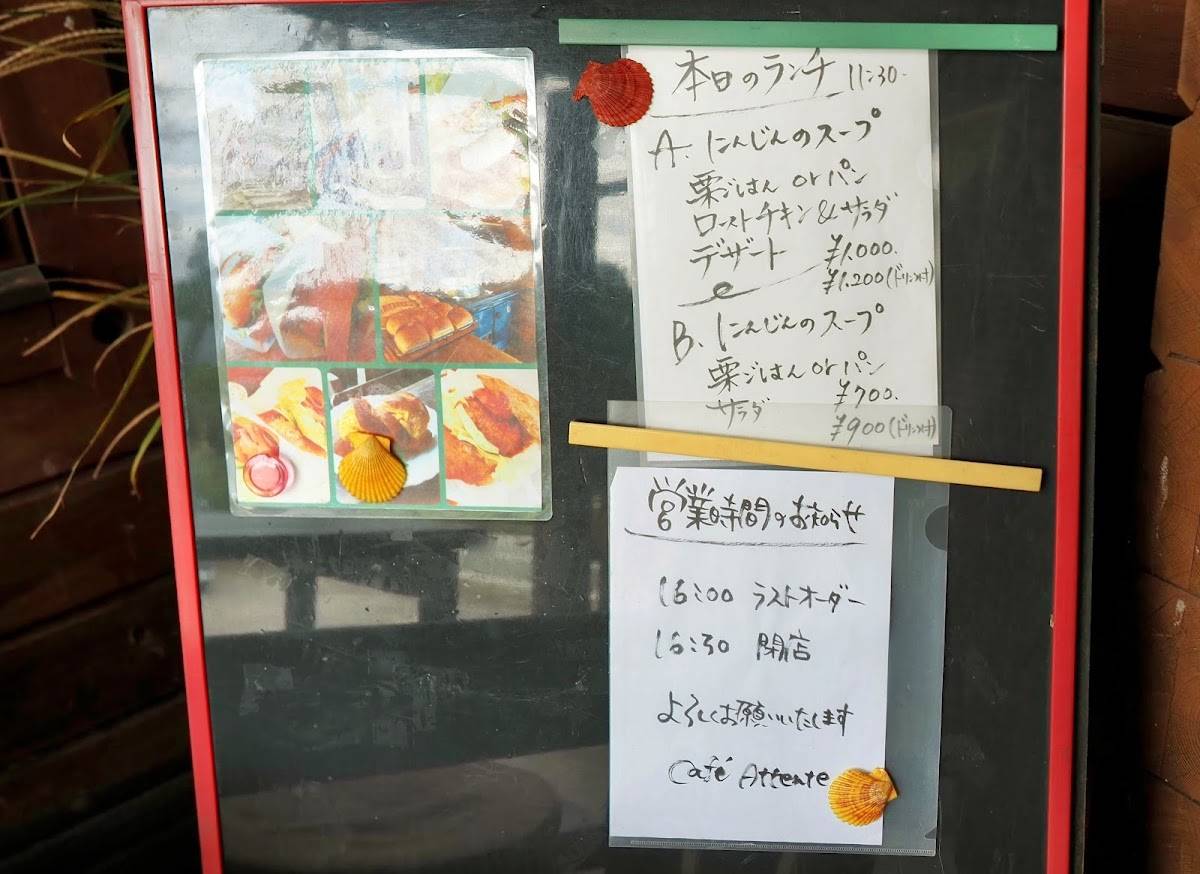 本日のランチ 11:30-
A. にんじんのスープ
栗ごはん or パン
ローストチキン&サラダ
デザート ¥1,000.
¥1,200(ドリンク付)
B. にんじんのスープ
栗ごはん or パン
サラダ ¥700.
¥900(ドリンク付)
営業時間のお知らせ
16:00 ラストオーダー
16:30 閉店
よろしくお願いいたします
Café Attente